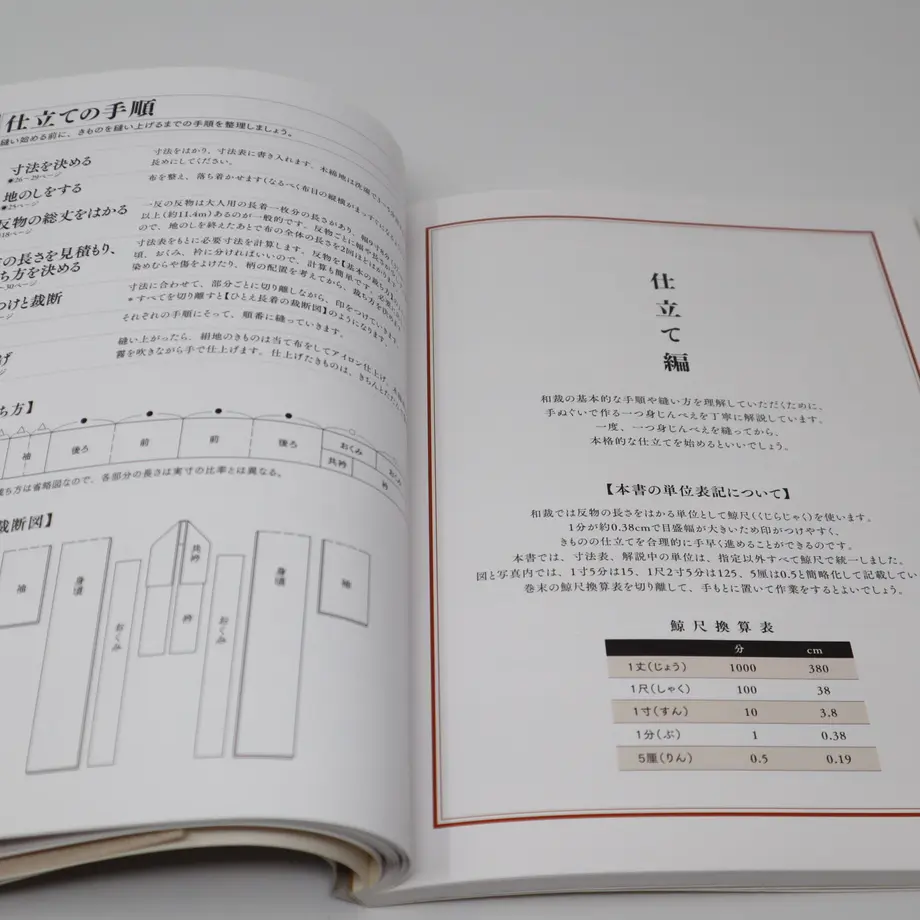 仕立ての手順
縫い始める前に、きものを縫い上げるまでの手順を整理しましょう。
寸法を決める
●26〜29ページ
寸法をはかり、寸法表に書き入れます。木綿地は洗濯で
長めにしてください。
地のしをする
●25ページ
布を整え、落ち着かせます(なるべく布目の縦横がまっすぐに
反物の総丈をはかる
18ページ
一反の反物は大人用の長着一枚分の長さがあり、
以上(約11.4m)あるのが一般的です。反物ごとに幅や長さが
ので、地のしを終えたあとで布の全体の長さを2回ほどはかります。
の長さを見積もり、
ち方を決める
〜30ページ
寸法表をもとに必要寸法を計算します。反物を【基本の裁ち方】
頃、おくみ、衿に分ければいいので、計算も簡単です。
染めむらや傷をよけたり、柄の配置を考えてから、裁ち方を決めます。
つけと裁断
ページ
寸法に合わせて、部分ごとに切り離しながら、印をつけていきます。
＊すべてを切り離すと【ひとえ長着の裁断図】のようになります。
それぞれの手順にそって、順番に縫っていきます。
げ
縫い上がったら、絹地のきものは当て布をしてアイロン仕上げ、
霧を吹きながら手で仕上げます。仕上げたきものは、きちんとたたん
ち方】
袖
後ろ
前
前
後ろ
おくみ
共衿
おくみ
衿
裁ち方は省略図なので、各部分の長さは実寸の比率とは異なる。
裁断図】
袖
身頃
おくみ
共衿
衿
おくみ
身頃
袖
仕立て編
和裁の基本的な手順や縫い方を理解していただくために、
手ぬぐいで作る一つ身じんべえを丁寧に解説しています。
一度、一つ身じんべえを縫ってから、
本格的な仕立てを始めるといいでしょう。
【本書の単位表記について】
和裁では反物の長さをはかる単位として鯨尺(くじらじゃく)を使います。
1分が約0.38cmで目盛幅が大きいため印がつけやすく、
きものの仕立てを合理的に手早く進めることができるのです。
本書では、寸法表、解説中の単位は、指定以外すべて鯨尺で統一しました。
図と写真内では、1寸5分は15、1尺2寸5分は125、5厘は0.5と簡略化して記載してい
巻末の鯨尺換算表を切り離して、手もとに置いて作業をするとよいでしょう。
鯨尺換算表
分 cm
1丈(じょう) 1000 380
1尺(しゃく) 100 38
1寸(すん) 10 3.8
1分(ぶ) 1 0.38
5厘(りん) 0.5 0.19